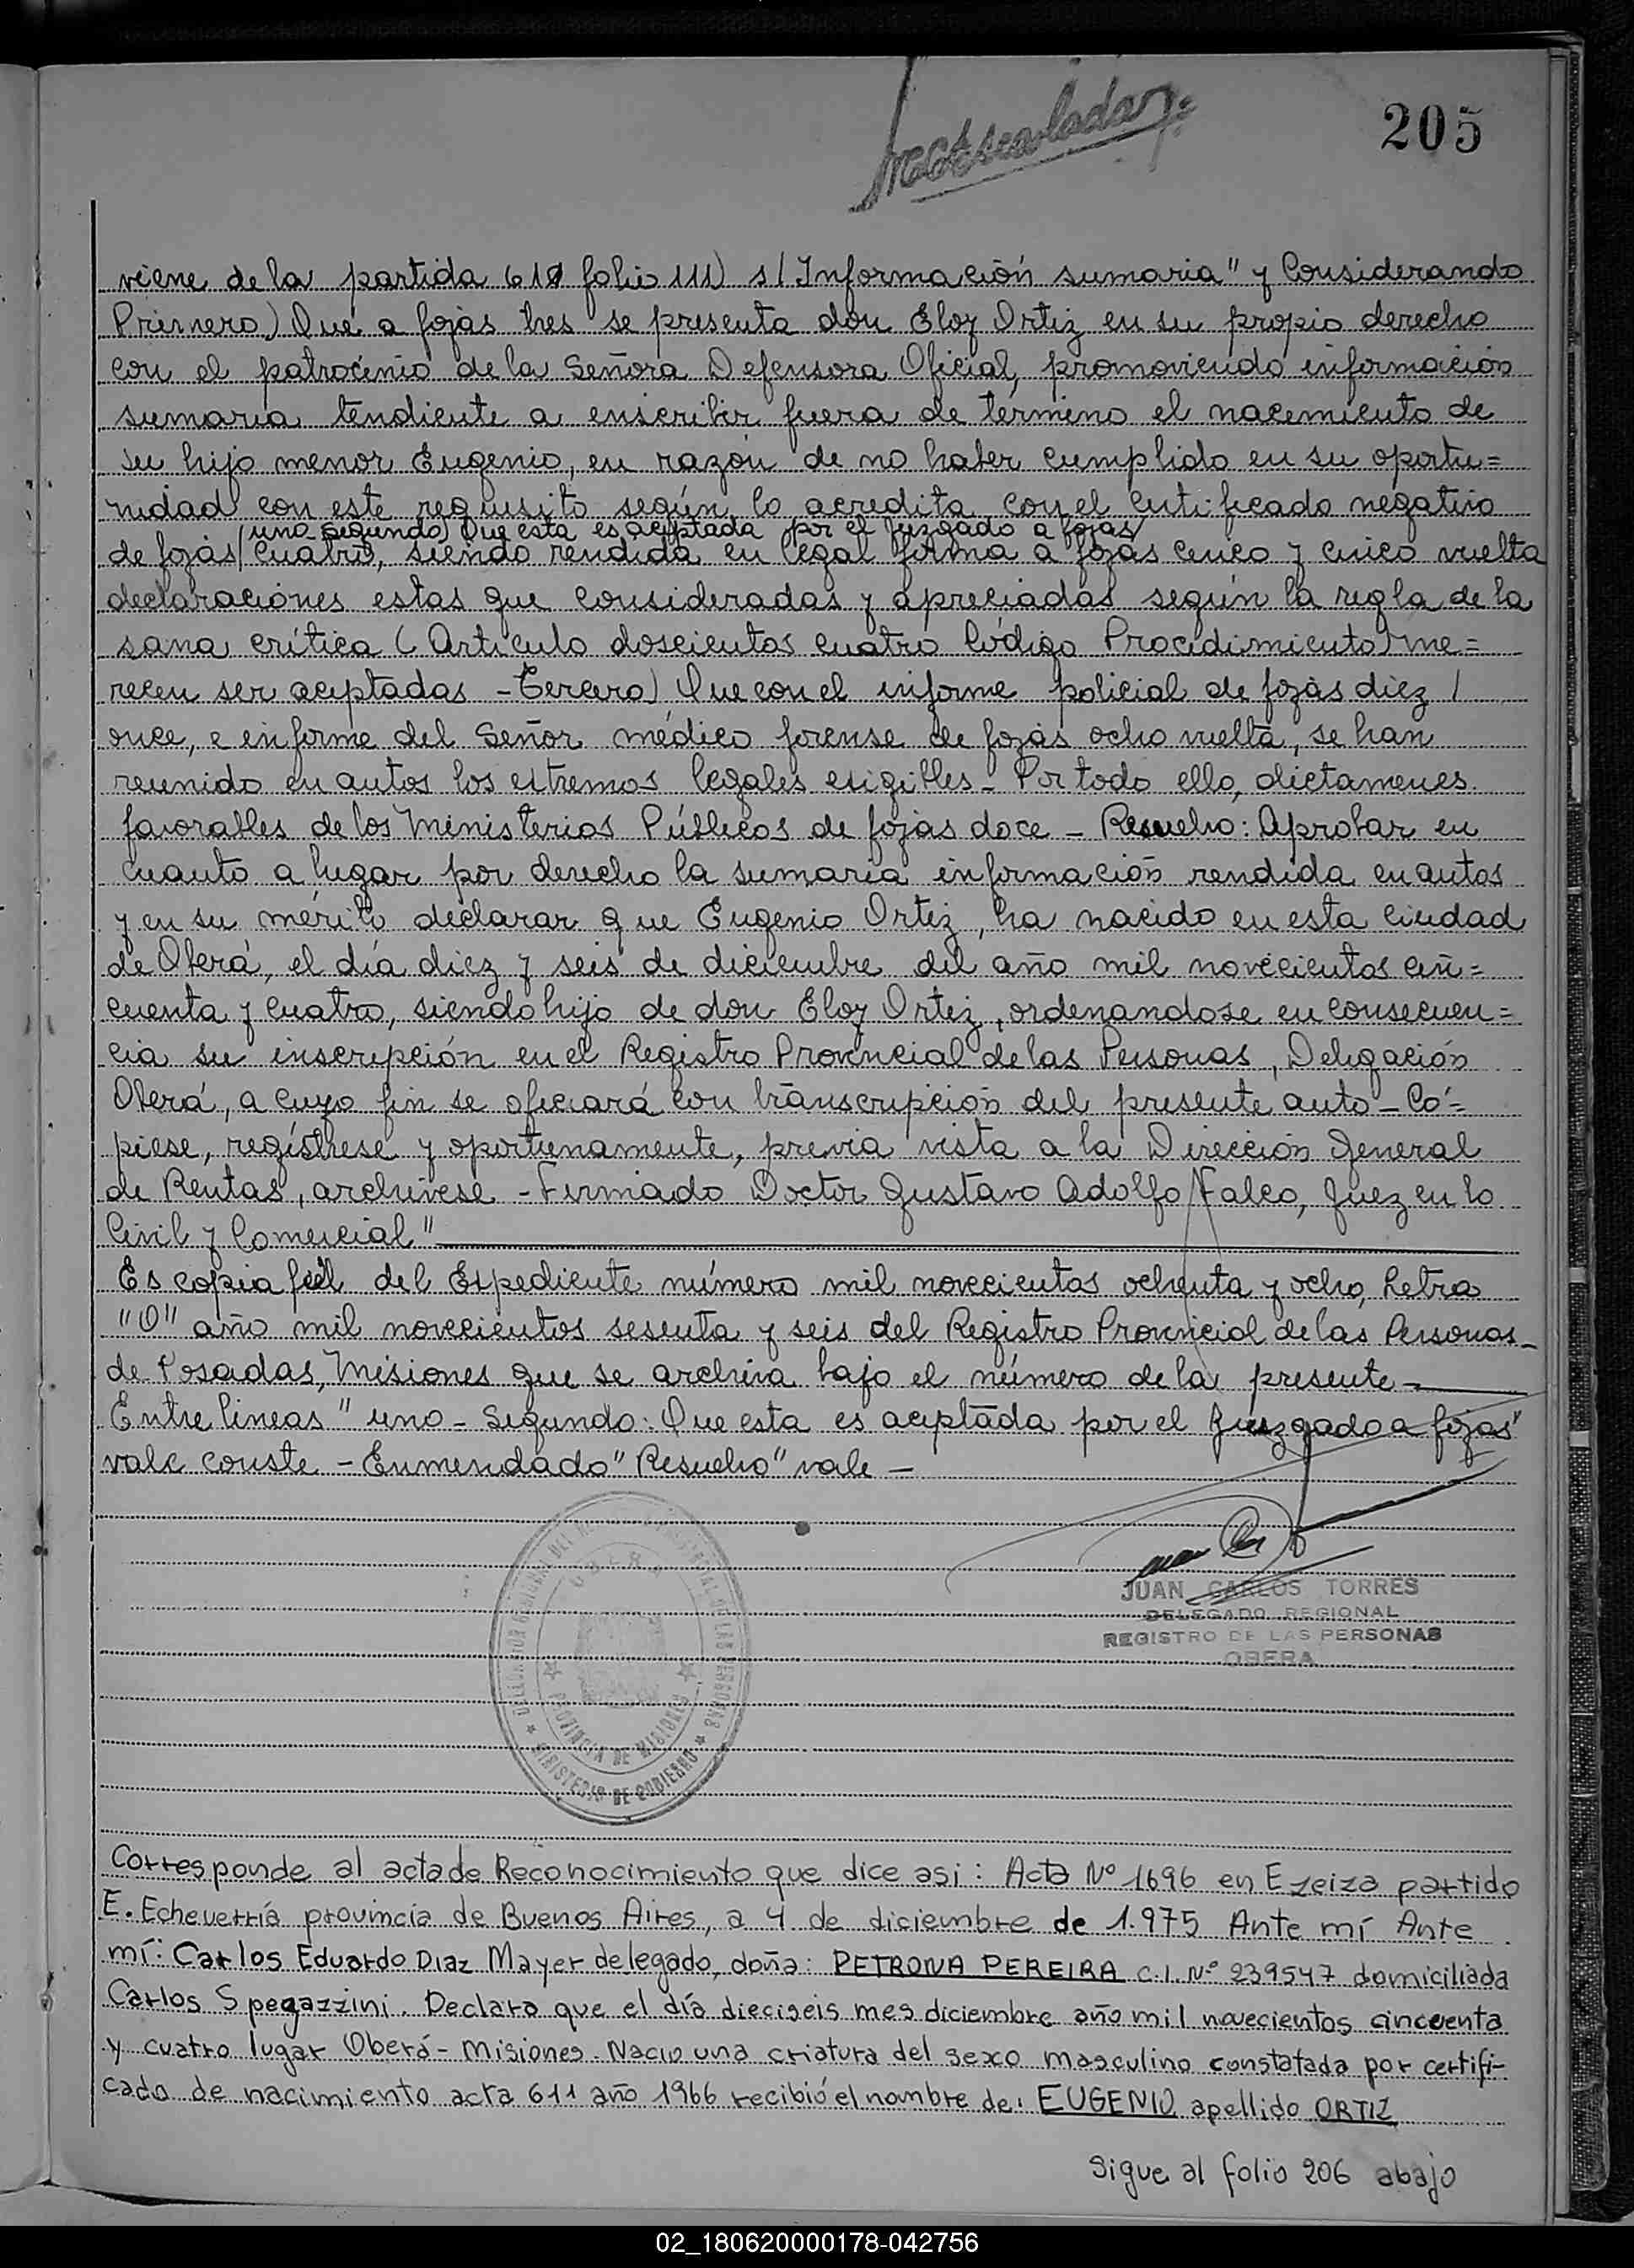 205
viene de la partida 611 folio 111) s/ Información sumaria" y Considerando
Primero) Que a fojas tres se presenta don Eloy Ortiz en su propio derecho
con el patrocinio de la Señora Defensora Oficial, promoviendo información
sumaria tendiente a enscribir fuera de término el nacemiento de
su hijo menor Eugenio, en razón de no haber cumplido en su oportu=
nidad con este requisito según lo acredita con el certificado negativo
uno segundo) Que esta es aceptada por el Juzgado a fojas
de fojas cuatro, siendo rendida en legal forma a fojas cinco y cinco vuelta
declaraciones estas que consideradas y apreciadas según la regla de la
sana crítica (Artículo doscientos cuatro Código Procedimiento) me=
recen ser aceptadas - Tercero) Que con el informe policial de fojas diez /
once, e informe del Señor médico forense de fojas ocho vuelta, se han
reunido en autos los estremos legales exigibles - Por todo ello, dictamenes
favorables de los Ministerios Públicos de fojas doce - Resuelvo: Aprobar en
cuanto a lugar por derecho la sumaria información rendida en autos
y en su mérito declarar que Eugenio Ortiz, ha nacido en esta ciudad
de Oberá, el día diez y seis de diciembre del año mil novecientos cin=
cuenta y cuatro, siendo hijo de don Eloy Ortiz, ordenandose en consecuen=
cia su inscripción en el Registro Provincial de las Personas, Delegación
Oberá, a cuyo fin se oficiará con transcripción del presente auto - Có=
piese, regístrese y oportunamente, previa vista a la Dirección General
de Rentas, archívese - Firmado Doctor Gustavo Adolfo Falco, Juez en lo
Civil y Comercial"
Es copia fiel del Expediente número mil novecientos ochenta y ocho, Letra
"O" año mil novecientos sesenta y seis del Registro Provincial de las Personas -
de Posadas, Misiones que se archiva bajo el número de la presente -
Entre lineas "uno - Segundo: Que esta es aceptada por el Juzgado a fojas"
vale conste - Enmendado "Resuelvo" vale -
JUAN CARLOS TORRES
DELEGADO REGIONAL
REGISTRO DE LAS PERSONAS
OBERA
PROVINCIA DE MISIONES
MINISTERIO DE GOBIERNO
Corresponde al acta de Reconocimiento que dice asi: Acta Nº 1696 en Ezeiza partido
E. Echeverría provincia de Buenos Aires, a 4 de diciembre de 1.975 Ante mí Ante
mí: Carlos Eduardo Diaz Mayer delegado, doña: PETRONA PEREIRA C.I. Nº 239547 domiciliada
Carlos Spegazzini. Declara que el día dieciseis mes diciembre año mil novecientos cincuenta
y cuatro lugar Oberá - Misiones. Nacio una criatura del sexo masculino constatada por certifi-
cado de nacimiento acta 611 año 1966 recibió el nombre de: EUGENIO apellido ORTIZ
Sigue al folio 206 abajo
02_180620000178-042756